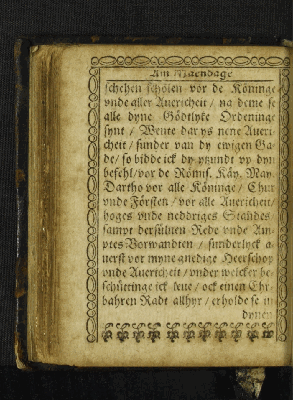 Am Maendage
schehen schölen vor de Köninge
vnde aller Auericheit / na deme se
alle dyne Gödtlyke Ordeninge
synt / Wente dar ys nene Aueri-
cheit / sunder van dy ewigen Ga-
de / so bidde ick dy ytzundt vp dyn
befehl / vor de Römis. Käy. May.
Dartho vor alle Köninge / Chur
vnde Försten / vor alle Auericheit /
hoges vnde neddriges Standes
sampt dersüluen Rede vnde Am-
ptes Vorwandten / sunderlyck a-
uerst vor myne gnedige Heerschop
vnde Auericheit / vnder welcker be-
schüttinge ick leue / ock einen Ehr-
bahren Radt allhyr / erholde se in
dynem